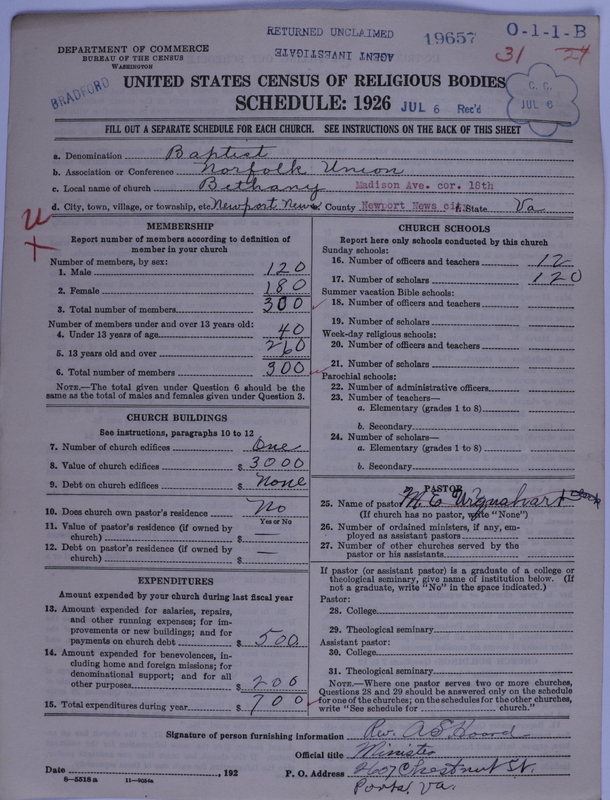 RETURNED UNCLAIMED
AGENT INVESTIGATE
19657
0-1-1-B
31
24
DEPARTMENT OF COMMERCE
BUREAU OF THE CENSUS
WASHINGTON
BRADFORD
UNITED STATES CENSUS OF RELIGIOUS BODIES
SCHEDULE: 1926
JUL 6 Rec'd
C. C.
JUL 6
FILL OUT A SEPARATE SCHEDULE FOR EACH CHURCH. SEE INSTRUCTIONS ON THE BACK OF THIS SHEET
a. Denomination Baptist
b. Association or Conference Norfolk Union
c. Local name of church Bethany Madison Ave. cor. 18th
d. City, town, village, or township, etc. Newport News County Newport News city State Va
MEMBERSHIP
Report number of members according to definition of
member in your church
Number of members, by sex:
1. Male 120
2. Female 180
3. Total number of members 300
Number of members under and over 13 years old:
4. Under 13 years of age 40
5. 13 years old and over 260
6. Total number of members 300
NOTE.—The total given under Question 6 should be the
same as the total of males and females given under Question 3.
CHURCH BUILDINGS
See instructions, paragraphs 10 to 12
7. Number of church edifices One
8. Value of church edifices $ 3000
9. Debt on church edifices $ None
10. Does church own pastor's residence No
Yes or No
11. Value of pastor's residence (if owned by
church) $ —
12. Debt on pastor's residence (if owned by
church) $ —
EXPENDITURES
Amount expended by your church during last fiscal year
13. Amount expended for salaries, repairs,
and other running expenses; for im-
provements or new buildings; and for
payments on church debt $ 500
14. Amount expended for benevolences, in-
cluding home and foreign missions; for
denominational support; and for all
other purposes $ 200
15. Total expenditures during year $ 700
CHURCH SCHOOLS
Report here only schools conducted by this church
Sunday schools:
16. Number of officers and teachers 12
17. Number of scholars 120
Summer vacation Bible schools:
18. Number of officers and teachers
19. Number of scholars
Week-day religious schools:
20. Number of officers and teachers
21. Number of scholars
Parochial schools:
22. Number of administrative officers
23. Number of teachers—
a. Elementary (grades 1 to 8)
b. Secondary
24. Number of scholars—
a. Elementary (grades 1 to 8)
b. Secondary
PASTOR
25. Name of pastor M. E. Urquahart
(If church has no pastor, write "None")
26. Number of ordained ministers, if any, em-
ployed as assistant pastors
27. Number of other churches served by the
pastor or his assistants
If pastor (or assistant pastor) is a graduate of a college or
theological seminary, give name of institution below. (If
not a graduate, write "No" in the space indicated.)
Pastor:
28. College
29. Theological seminary
Assistant pastor:
30. College
31. Theological seminary
NOTE.—Where one pastor serves two or more churches,
Questions 28 and 29 should be answered only on the schedule
for one of the churches; on the schedules for the other churches,
write "See schedule for church."
Signature of person furnishing information Rev. A S
Official title Minister
Date , 192 P. O. Address Chestnut St.
8—5518 a 11—9014a
Ports. Va.